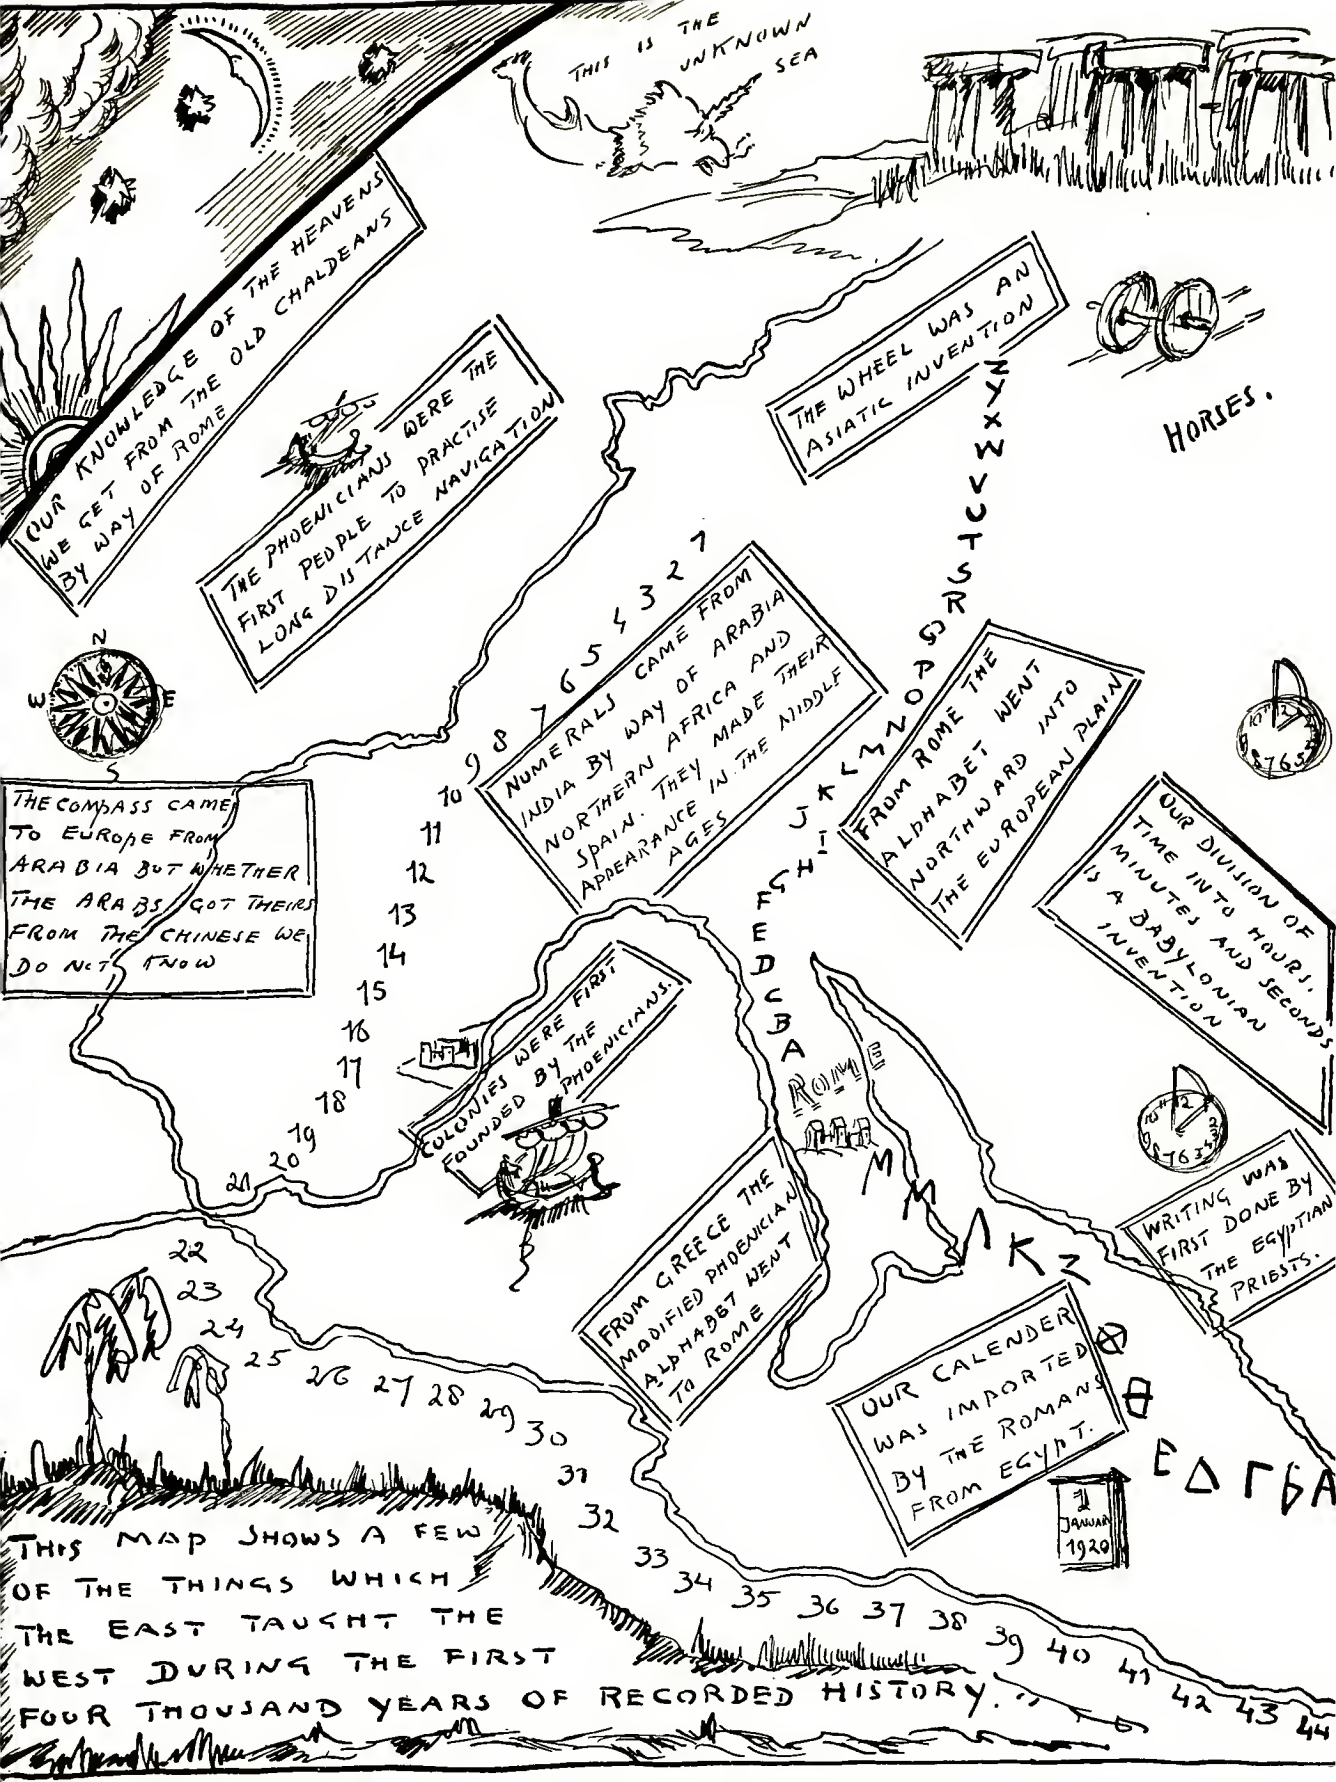 THIS IS THE
UNKNOWN
SEA
OUR KNOWLEDGE OF THE HEAVENS
WE GET FROM THE OLD CHALDEANS
BY WAY OF ROME
THE PHOENICIANS WERE THE
FIRST PEOPLE TO PRACTISE
LONG DISTANCE NAVIGATION
THE WHEEL WAS AN
ASIATIC INVENTION
HORSES.
Z
Y
X
W
V
U
T
S
R
Q
P
O
N
M
L
K
J
I
H
G
F
E
D
C
B
A
N
W E
S
THE COMPASS CAME
TO EUROPE FROM
ARABIA BUT WHETHER
THE ARABS GOT THEIRS
FROM THE CHINESE WE
DO NOT KNOW
1
2
3
4
5
6
7
8
9
10
11
12
13
14
15
16
17
18
19
20
21
22
23
24
25 26 27 28 29 30
31
32
33 34 35 36 37 38 39 40 41 42 43 44
NUMERALS CAME FROM
INDIA BY WAY OF ARABIA
NORTHERN AFRICA AND
SPAIN. THEY MADE THEIR
APPEARANCE IN THE MIDDLE
AGES
FROM ROME THE
ALPHABET WENT
NORTHWARD INTO
THE EUROPEAN PLAIN
OUR DIVISION OF
TIME INTO HOURS,
MINUTES AND SECONDS
IS A BABYLONIAN
INVENTION
COLONIES WERE FIRST
FOUNDED BY THE
PHOENICIANS.
ROME
FROM GREECE THE
MODIFIED PHOENICIAN
ALPHABET WENT
TO ROME
WRITING WAS
FIRST DONE BY
THE EGYPTIAN
PRIESTS.
M M Λ K Z
⊗
Θ
E Δ Γ B A
OUR CALENDER
WAS IMPORTED
BY THE ROMANS
FROM EGYPT.
1
JANUARI
1920
THIS MAP SHOWS A FEW
OF THE THINGS WHICH
THE EAST TAUGHT THE
WEST DURING THE FIRST
FOUR THOUSAND YEARS OF RECORDED HISTORY.